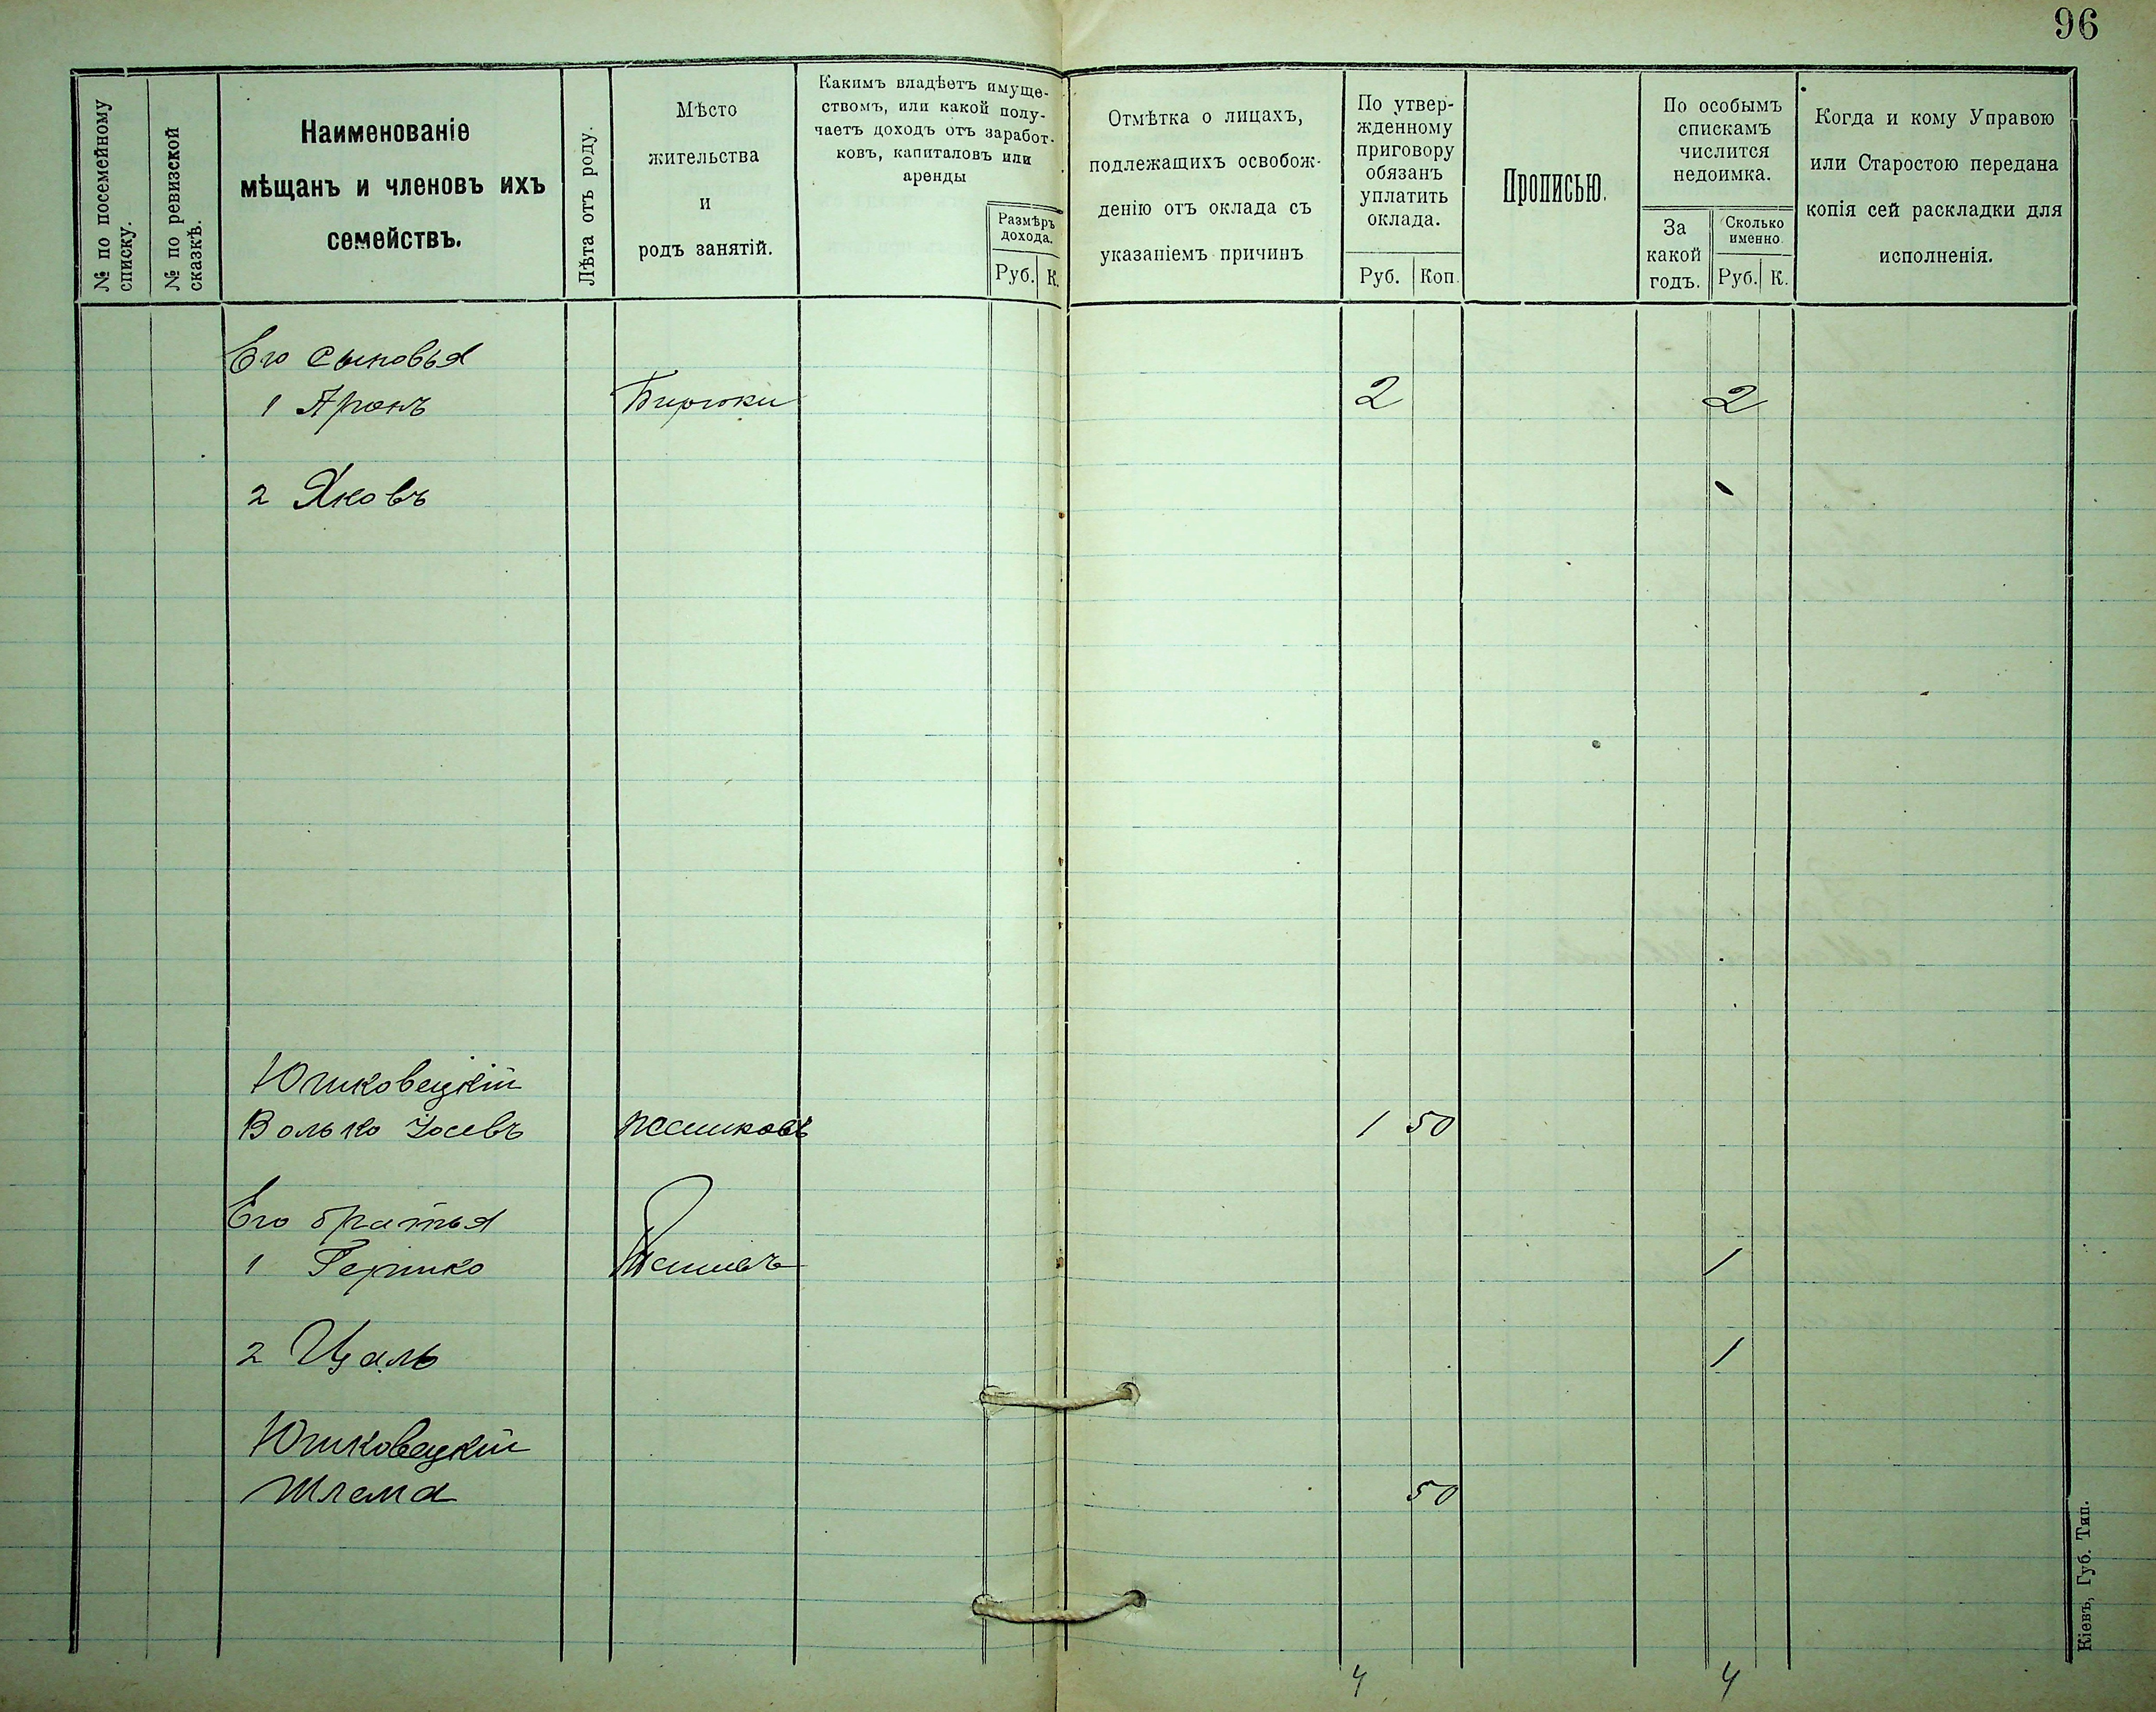 96
№ по посемейному
списку.
№ по ревизской
сказкѣ.
Наименованіе
мѣщанъ и членовъ ихъ
семействъ.
Лѣта отъ роду.
Мѣсто
жительства
и
родъ занятій.
Какимъ владѣетъ имуще-
ствомъ, или какой полу-
чаетъ доходъ отъ заработ-
ковъ, капиталовъ или
аренды
Размѣръ
дохода.
Руб. К.
Отмѣтка о лицахъ,
подлежащихъ освобож-
денію отъ оклада съ
указаніемъ причинъ
По утвер-
жденному
приговору
обязанъ
уплатить
оклада.
Руб. Коп.
Прописью.
По особымъ
спискамъ
числится
недоимка.
За
какой
годъ.
Сколько
именно
Руб. К.
Когда и кому Управою
или Старостою передана
копія сей раскладки для
исполненія.
Его сыновья
1 Аронъ Бирюки 2 2
2 Яковъ
Юшковецкій
Волько 1 50
Его братья
1 Гершко 1
2 Цаль 1
Юшковецкій
Шлема 50
4 4
Кіевъ, Губ. Тип.